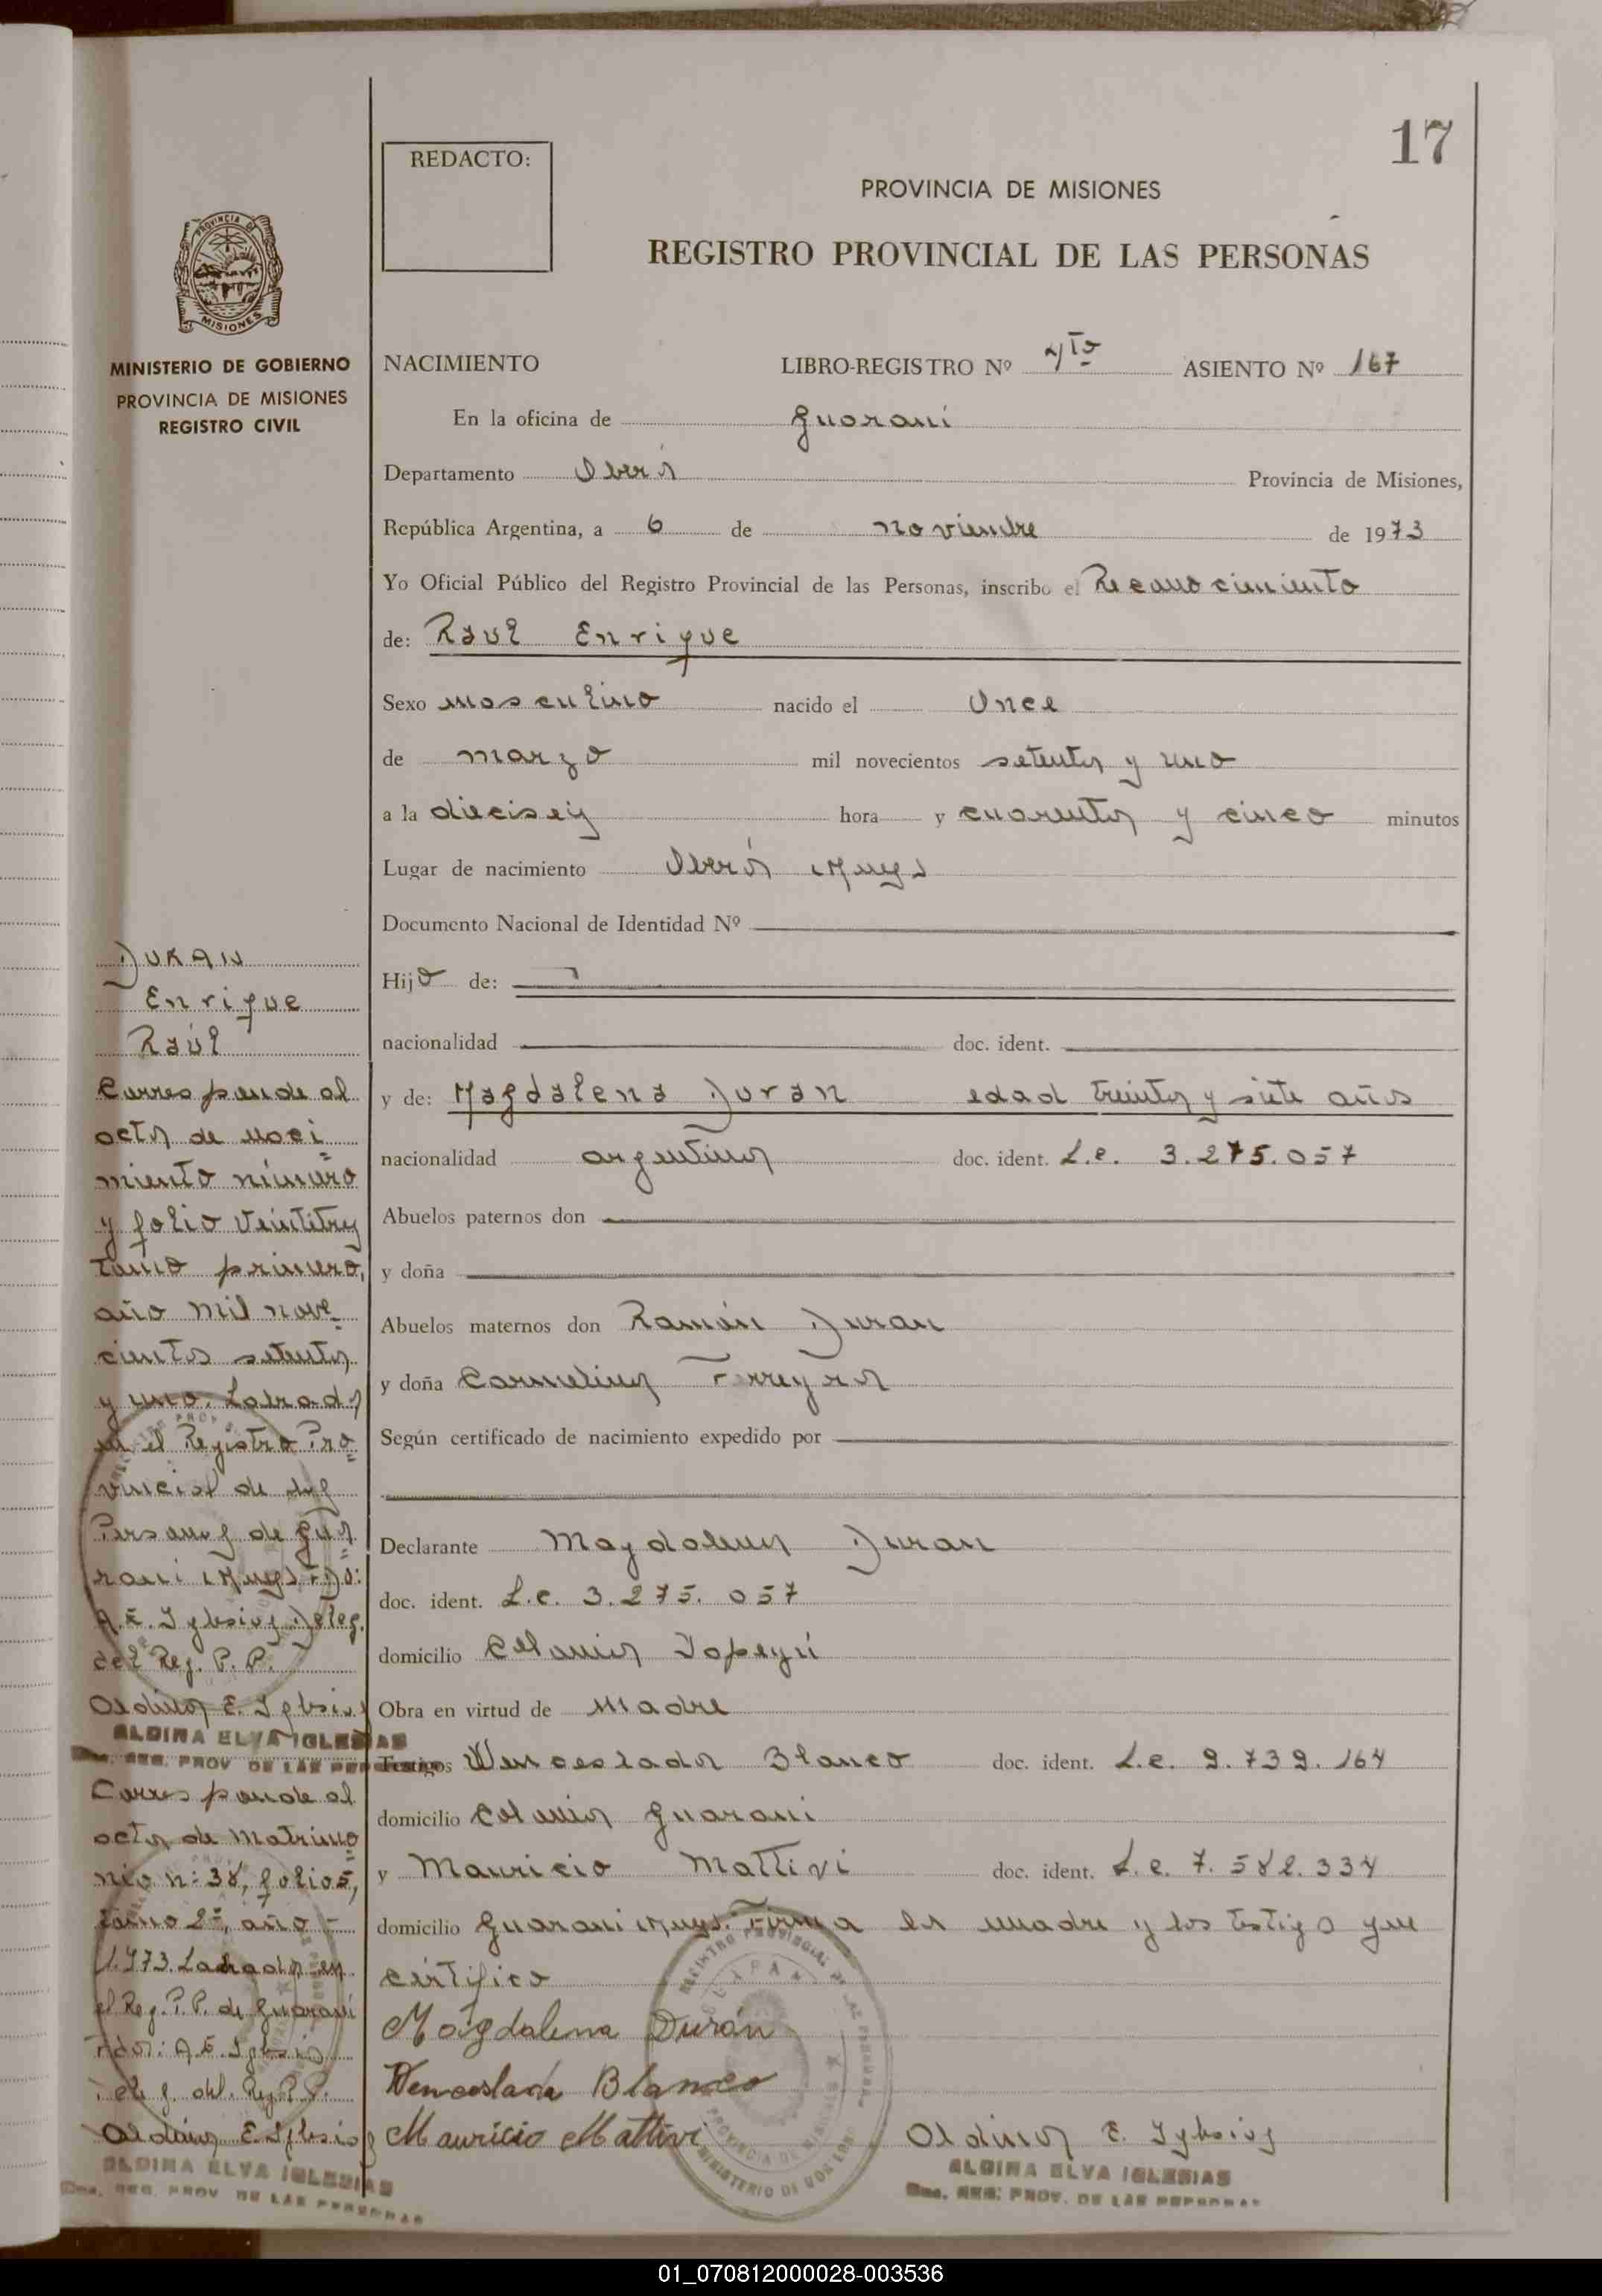 17
REDACTO:
PROVINCIA DE MISIONES
REGISTRO PROVINCIAL DE LAS PERSONAS
PROVINCIA DE
MISIONES
MINISTERIO DE GOBIERNO
PROVINCIA DE MISIONES
REGISTRO CIVIL
NACIMIENTO LIBRO-REGISTRO Nº 4to ASIENTO Nº 167
En la oficina de Guarani
Departamento Oberá Provincia de Misiones,
República Argentina, a 6 de noviembre de 1973
Yo Oficial Público del Registro Provincial de las Personas, inscribo el Reconocimiento
de: Raúl Enrique
Sexo masculino nacido el Once
de marzo mil novecientos setenta y uno
a la dieciseis hora y cuarenta y cinco minutos
Lugar de nacimiento Oberá Mnes
Documento Nacional de Identidad Nº
Hijo de:
nacionalidad doc. ident.
y de: Magdalena Duran edad treinta y siete años
nacionalidad argentina doc. ident. L.c. 3.275.057
Abuelos paternos don
y doña
Abuelos maternos don Ramón Duran
y doña Carmelina Ferreyra
Según certificado de nacimiento expedido por
Declarante Magdalena Duran
doc. ident. L.c. 3.275.057
domicilio Colonia Yapeyú
Obra en virtud de Madre
Testigos Wenceslada Blanco doc. ident. L.c. 9.739.164
domicilio Colonia Guarani
y Mauricio Mattivi doc. ident. L.e. 7.582.334
domicilio Guarani Mnes. Firma la madre y los testigo que
certifico
Magdalena Durán
Wenceslada Blanco
Mauricio Mattivi
Aldina E. Iglesias
ALDINA ELVA IGLESIAS
REG. PROV. DE LAS PERSONAS
DURAN
Enrique
Raúl
Corresponde al
acta de naci
miento número
y folio veintitres
tomo primero,
año mil nove-
cientos setenta
y uno. Labrada
en el Registro Pro
vincial de las
Personas de Gua
rani Mnes. Fdo:
A.E. Iglesias Deleg.
del Reg. P.P.
Aldina E. Iglesias
ALDINA ELVA IGLESIAS
REG. PROV DE LAS PERSONAS
Corresponde al
acta de Matrimo
nio nº 38, folio 5,
tomo 2º, año
1.973. Labrada en
el Reg. P.P. de Guarani
Fdo: A.E. Iglesias
Deleg. del Reg. P.P.
Aldina E. Iglesias
ALDINA ELVA IGLESIAS
REG. PROV DE LAS PERSONAS
01_070812000028-003536